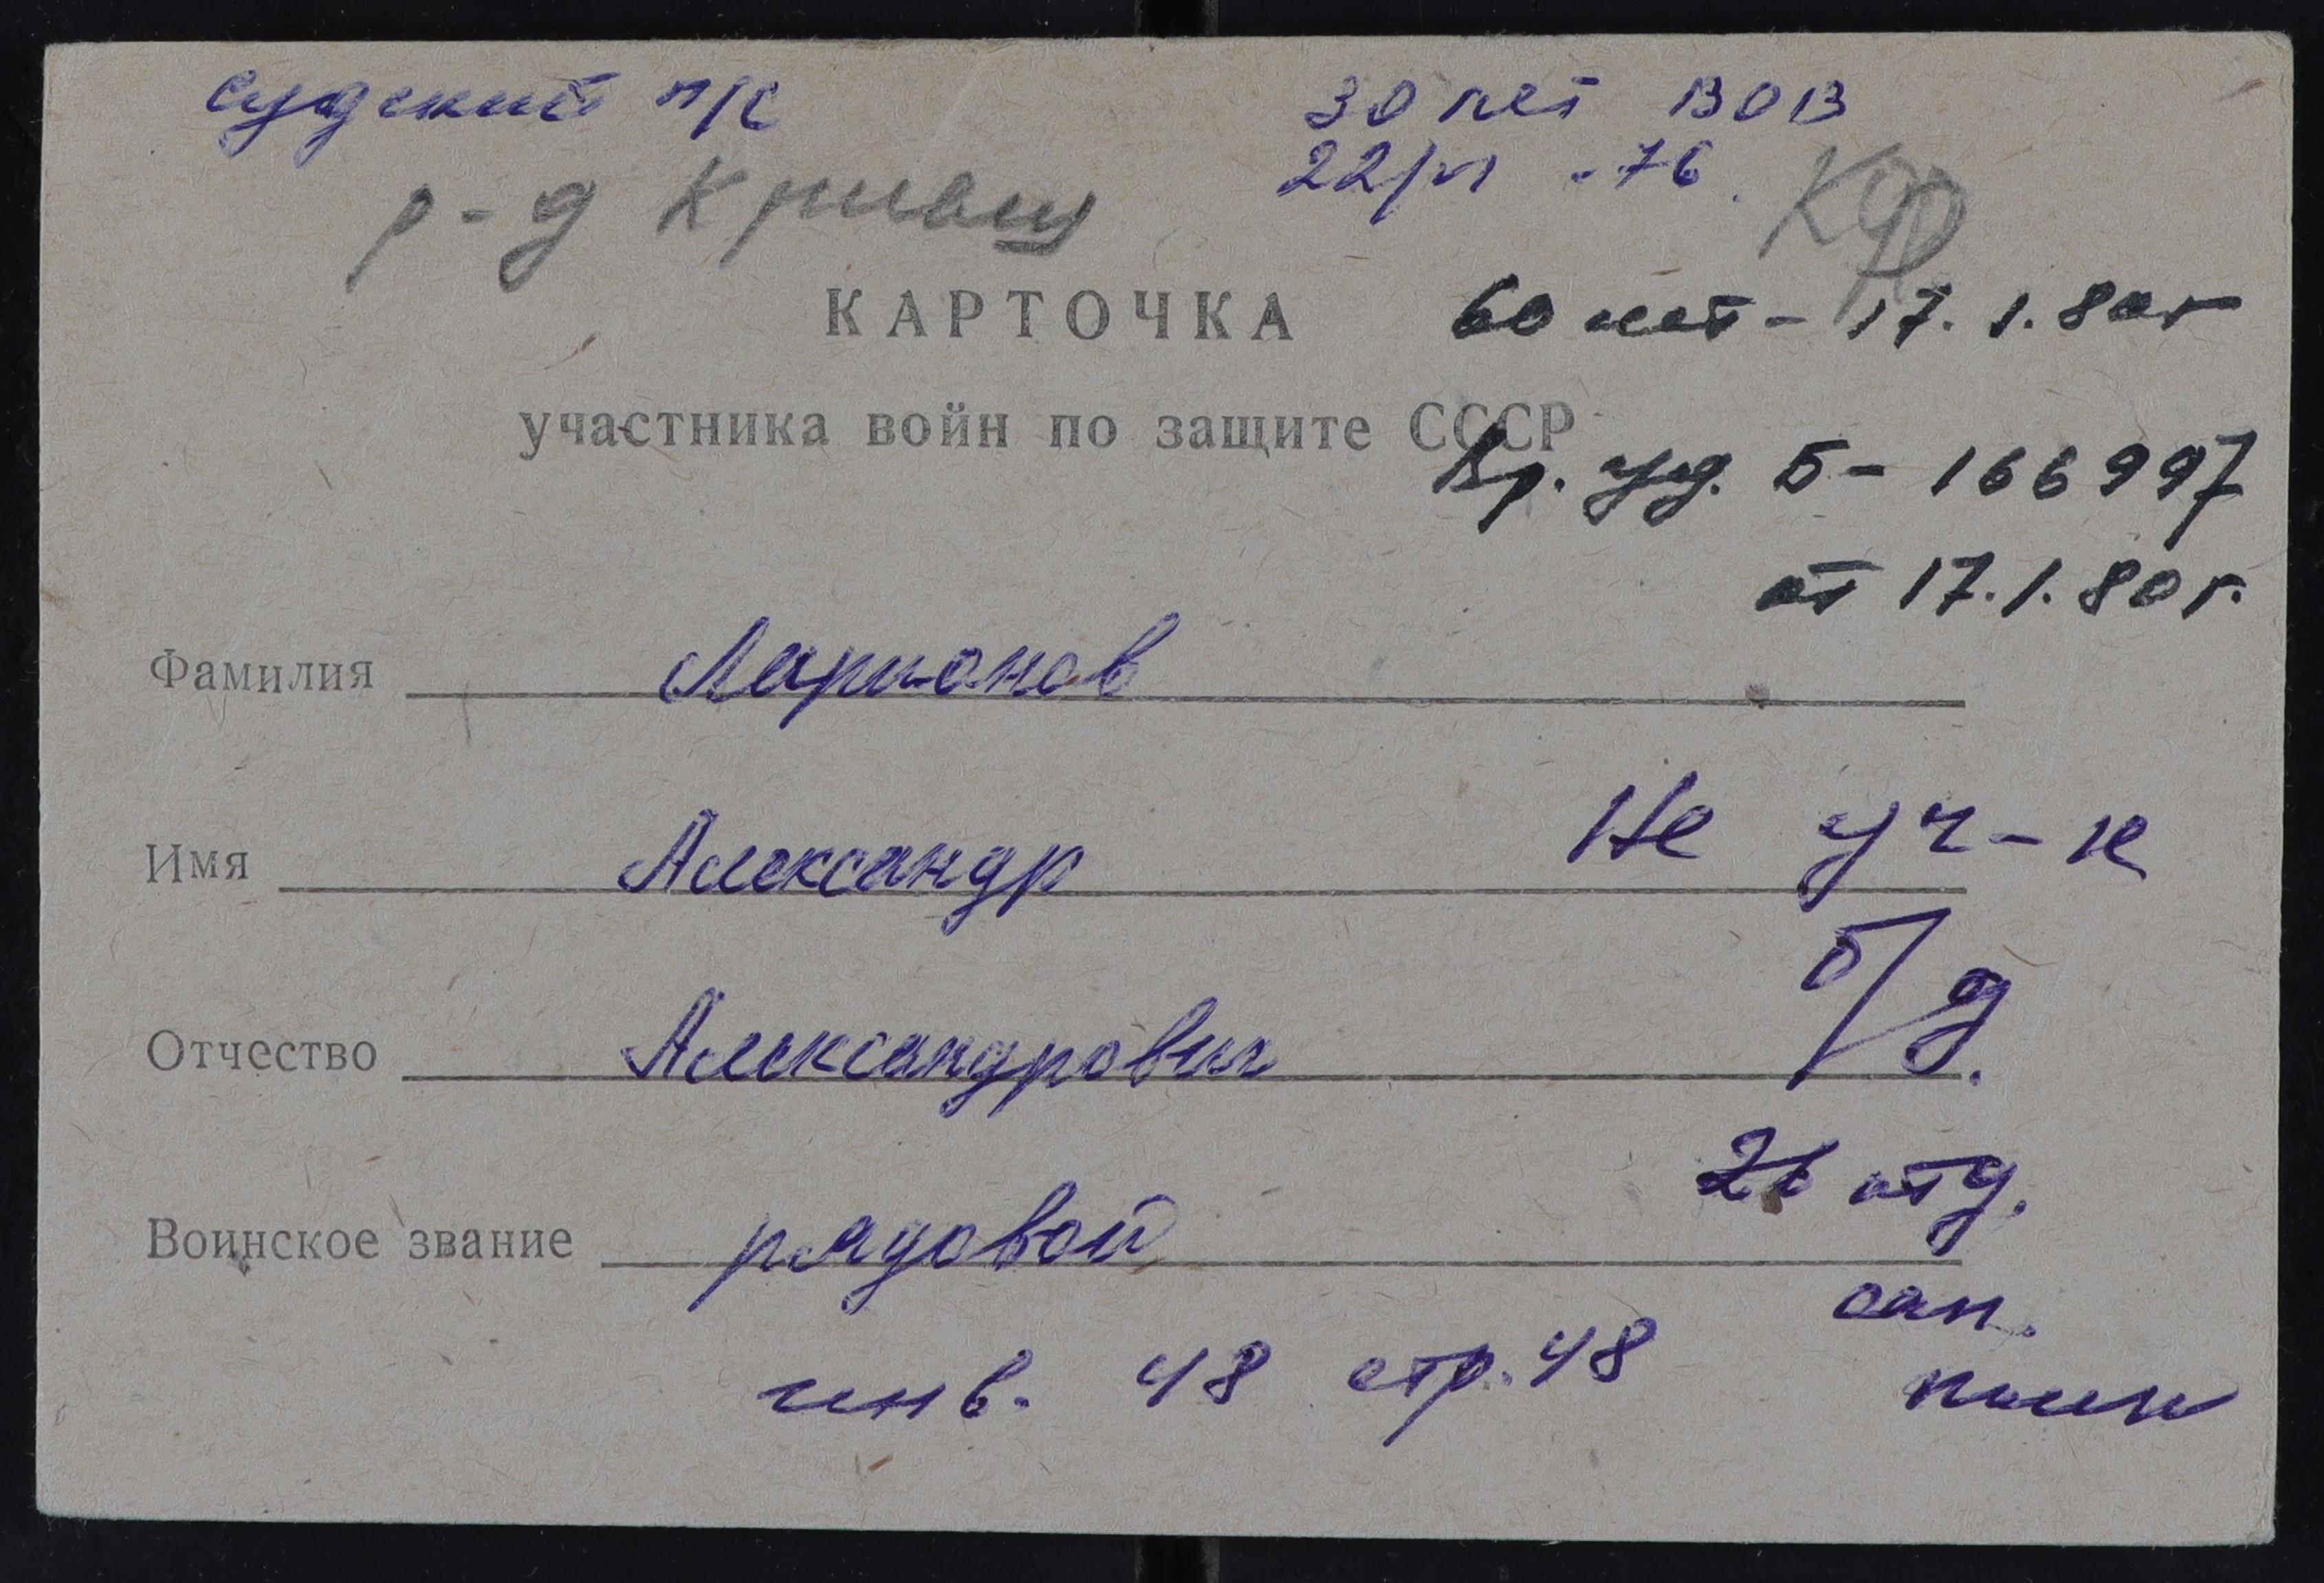 Судский п/с
30 лет ВОВ
22/VI - 76.
р-д Кривец
КАРТОЧКА
60 лет - 17.1.80г
участника войн по защите СССР
Вр. уд. Б - 166997
от 17.1.80г.
Фамилия Ларионов
Имя Александр
Не уч-к
Отчество Александрович
б/д.
26 отд.
Воинское звание рядовой
сан.
инв. 48 стр. 48